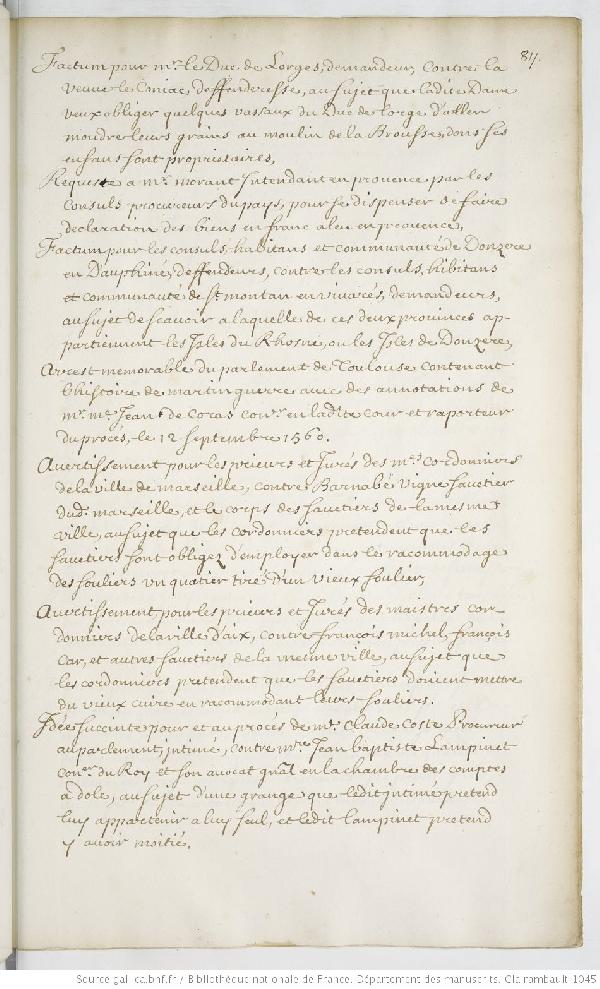 84.
Factum pour mr. le Duc de Lorges, demandeur, contre la
veuve le Coniac, deffenderesse, au sujet que ladite Dame
veux obliger quelques vassaux du Duc de lorge d'aller
moudre leurs grains au moulin de la Brousse, dons ses
enfans sont proprietaires,
Requeste a mr. morant Intendant en provence par les
Consuls procureurs du pays, pour se dispenser de faire
declaration des biens en franc aleu en provence,
Factum pour les consuls, habitans et communauté de Donzere
en Dauphiné, deffendeurs, contre les consuls, hibitans
et communauté de St. montan en vivarés, demandeurs,
au sujet de scavoir a laquelle de ces deux provinces ap-
partiennent les Isles du Rhosne, ou les Isles de Donzere,
Arrest memorable du parlement de Toulouse contenant
l'histoire de martin guerre avec des annotations de
mr. me. Jean de Coras conr. en ladite cour et raporteur
du procés, le 12 septembre 1560.
Avertissement pour les prieurs et Jurés des mes. cordonniers
de la ville de marseille, contre Barnabé vigne savetier
dud. marseille, et le corps des savetiers de la mesme
ville, au sujet que les cordonniers pretendent que les
savetiers sont obligez d'employer dans le racommodage
des souliers un quatier tiré d'un vieux soulier,
Avertissement pour les prieurs et Jurés des maistres cor-
donniers de la ville d'aix, contre françois michel, françois
Car, et autres savetiers de la mesme ville, au sujet que
les cordonniers pretendent que les savetiers doivent mettre
du vieux cuire en racommodant leurs souliers.
Idée succinte pour et au procés de me. Claude Coste Procureur
au parlement, intimé, contre mre. Jean baptiste Lampinet
conr. du Roy et son avocat gnãl en la chambre des comptes
a dole, au sujet d'une grange que ledit intimé pretend
luy appartenir a luy seul, et ledit lampinet pretend
y avoir moitié.
Source gallica.bnf.fr / Bibliothèque nationale de France. Département des manuscrits. Clairambault 1045